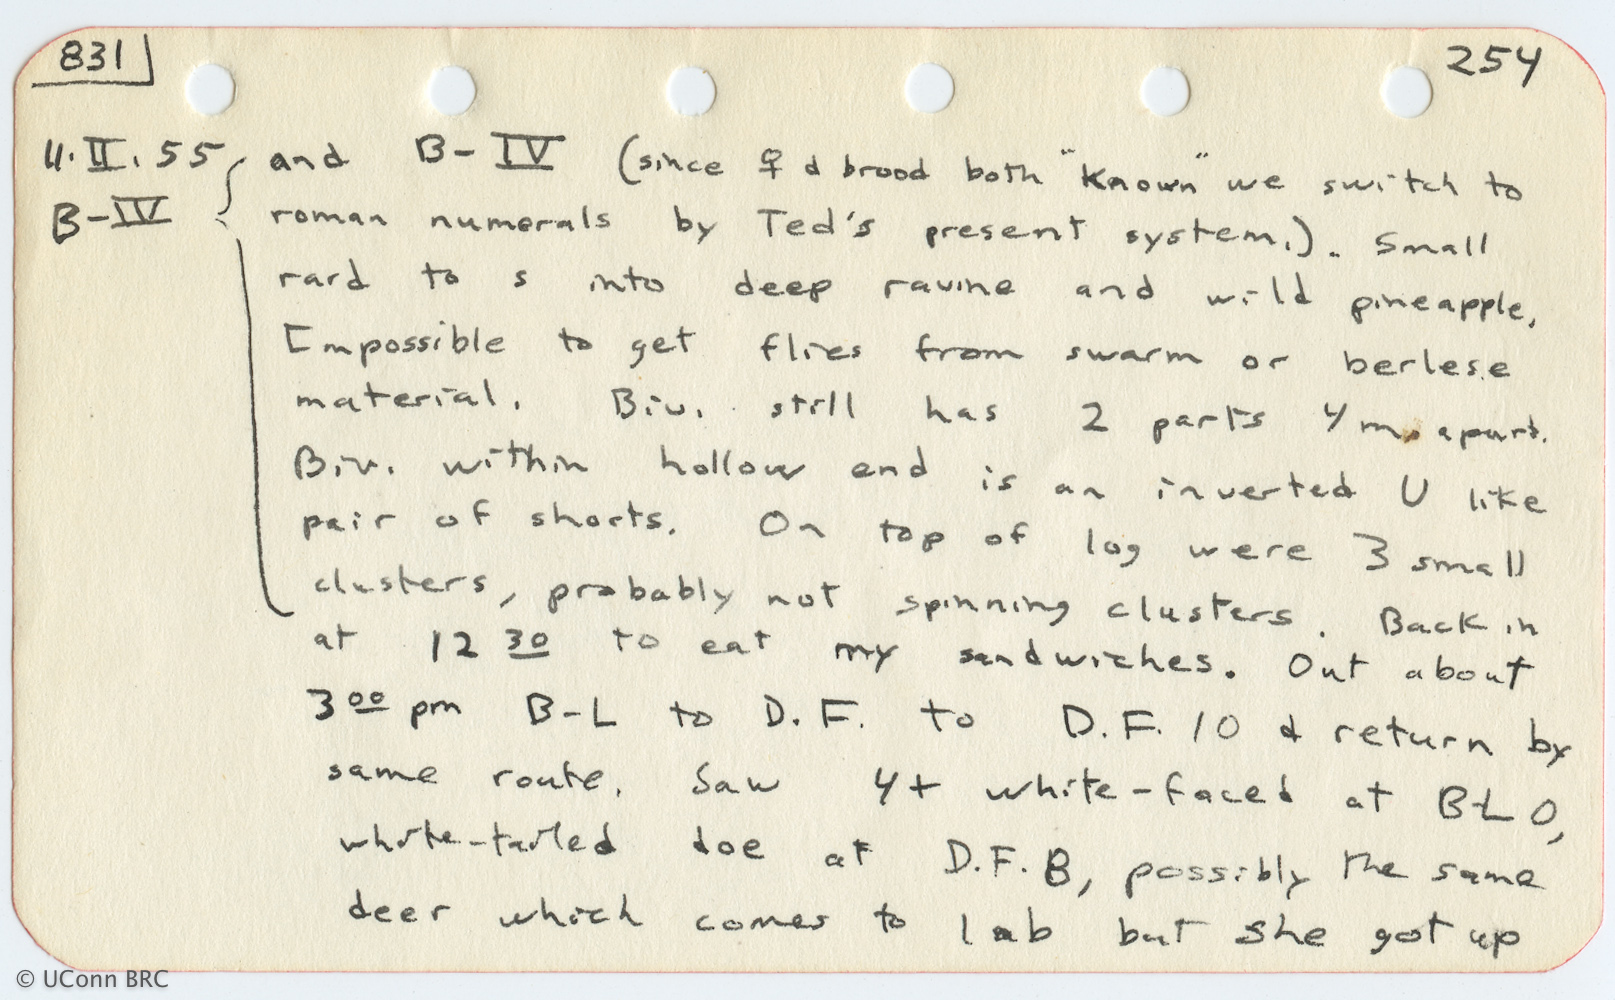 831
254
11.II.55 and B-IV (since ♀ & brood both "Known" we switch to
B-IV roman numerals by Ted's present system.). Small
rard to s into deep ravine and wild pineapple.
Impossible to get flies from swarm or berlese
material. Biv. still has 2 parts 4 m. apart.
Biv. within hollow end is an inverted U like
pair of shorts. On top of log were 3 small
clusters, probably not spinning clusters. Back in
at 12 30 to eat my sandwiches. Out about
3 00 pm B-L to D.F. to D.F. 10 & return by
same route. Saw 4+ white-faced at B-L 0,
white-tailed doe at D.F. 8, possibly the same
deer which comes to lab but she got up
© UConn BRC